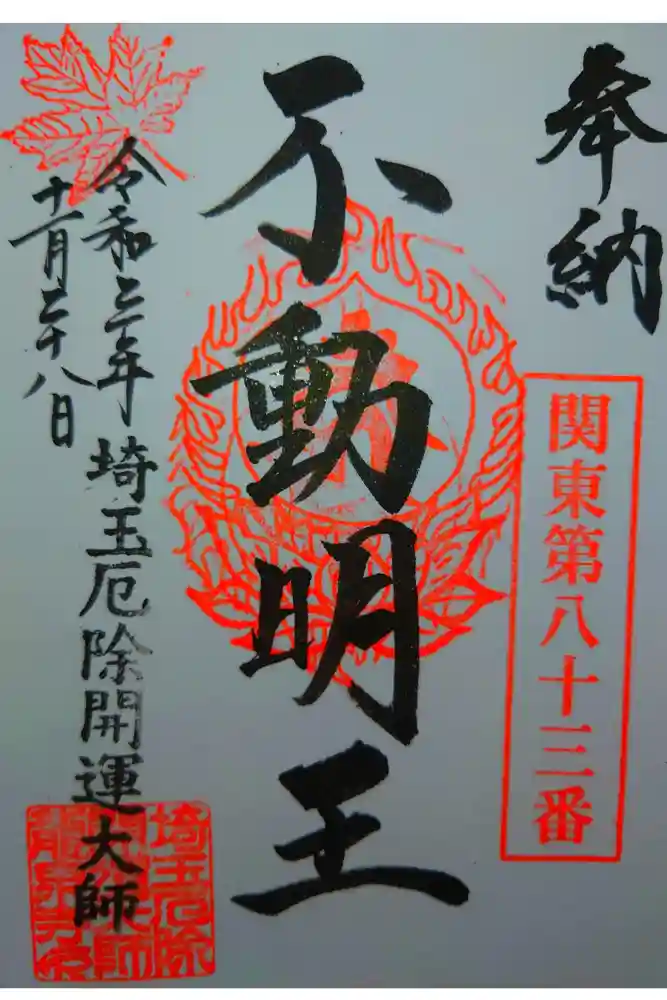 奉納
関東第八十三番
不動明王
令和三年
十一月二十八日
埼玉厄除開運大師
埼玉厄除
開運大師
龍泉寺印